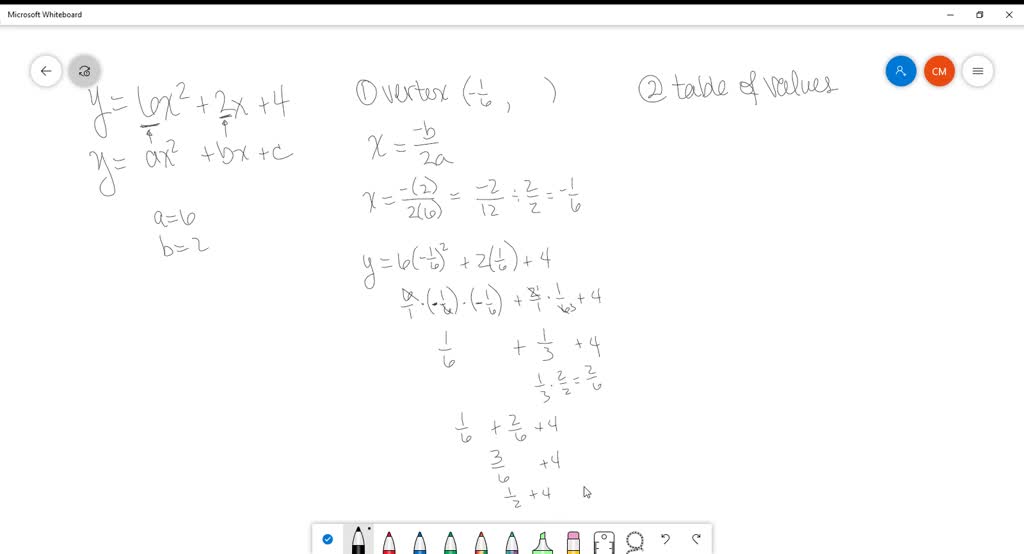 Microsoft Whiteboard
CM
y = 6x² + 2x + 4
y = ax² + bx + c
a = 6
b = 2
① vertex (-1/6 ,    )
x = -b/2a
x = -(2)/2(6) = -2/12 ÷ 2/2 = -1/6
y = 6(-1/6)² + 2(1/6) + 4
6/1 · (-1/6) · (-1/6) + 2̶1/1 · 1/6̶3 + 4
1/6 + 1/3 + 4
1/3 · 2/2 = 2/6
1/6 + 2/6 + 4
3/6 + 4
1/2 + 4
② table of values